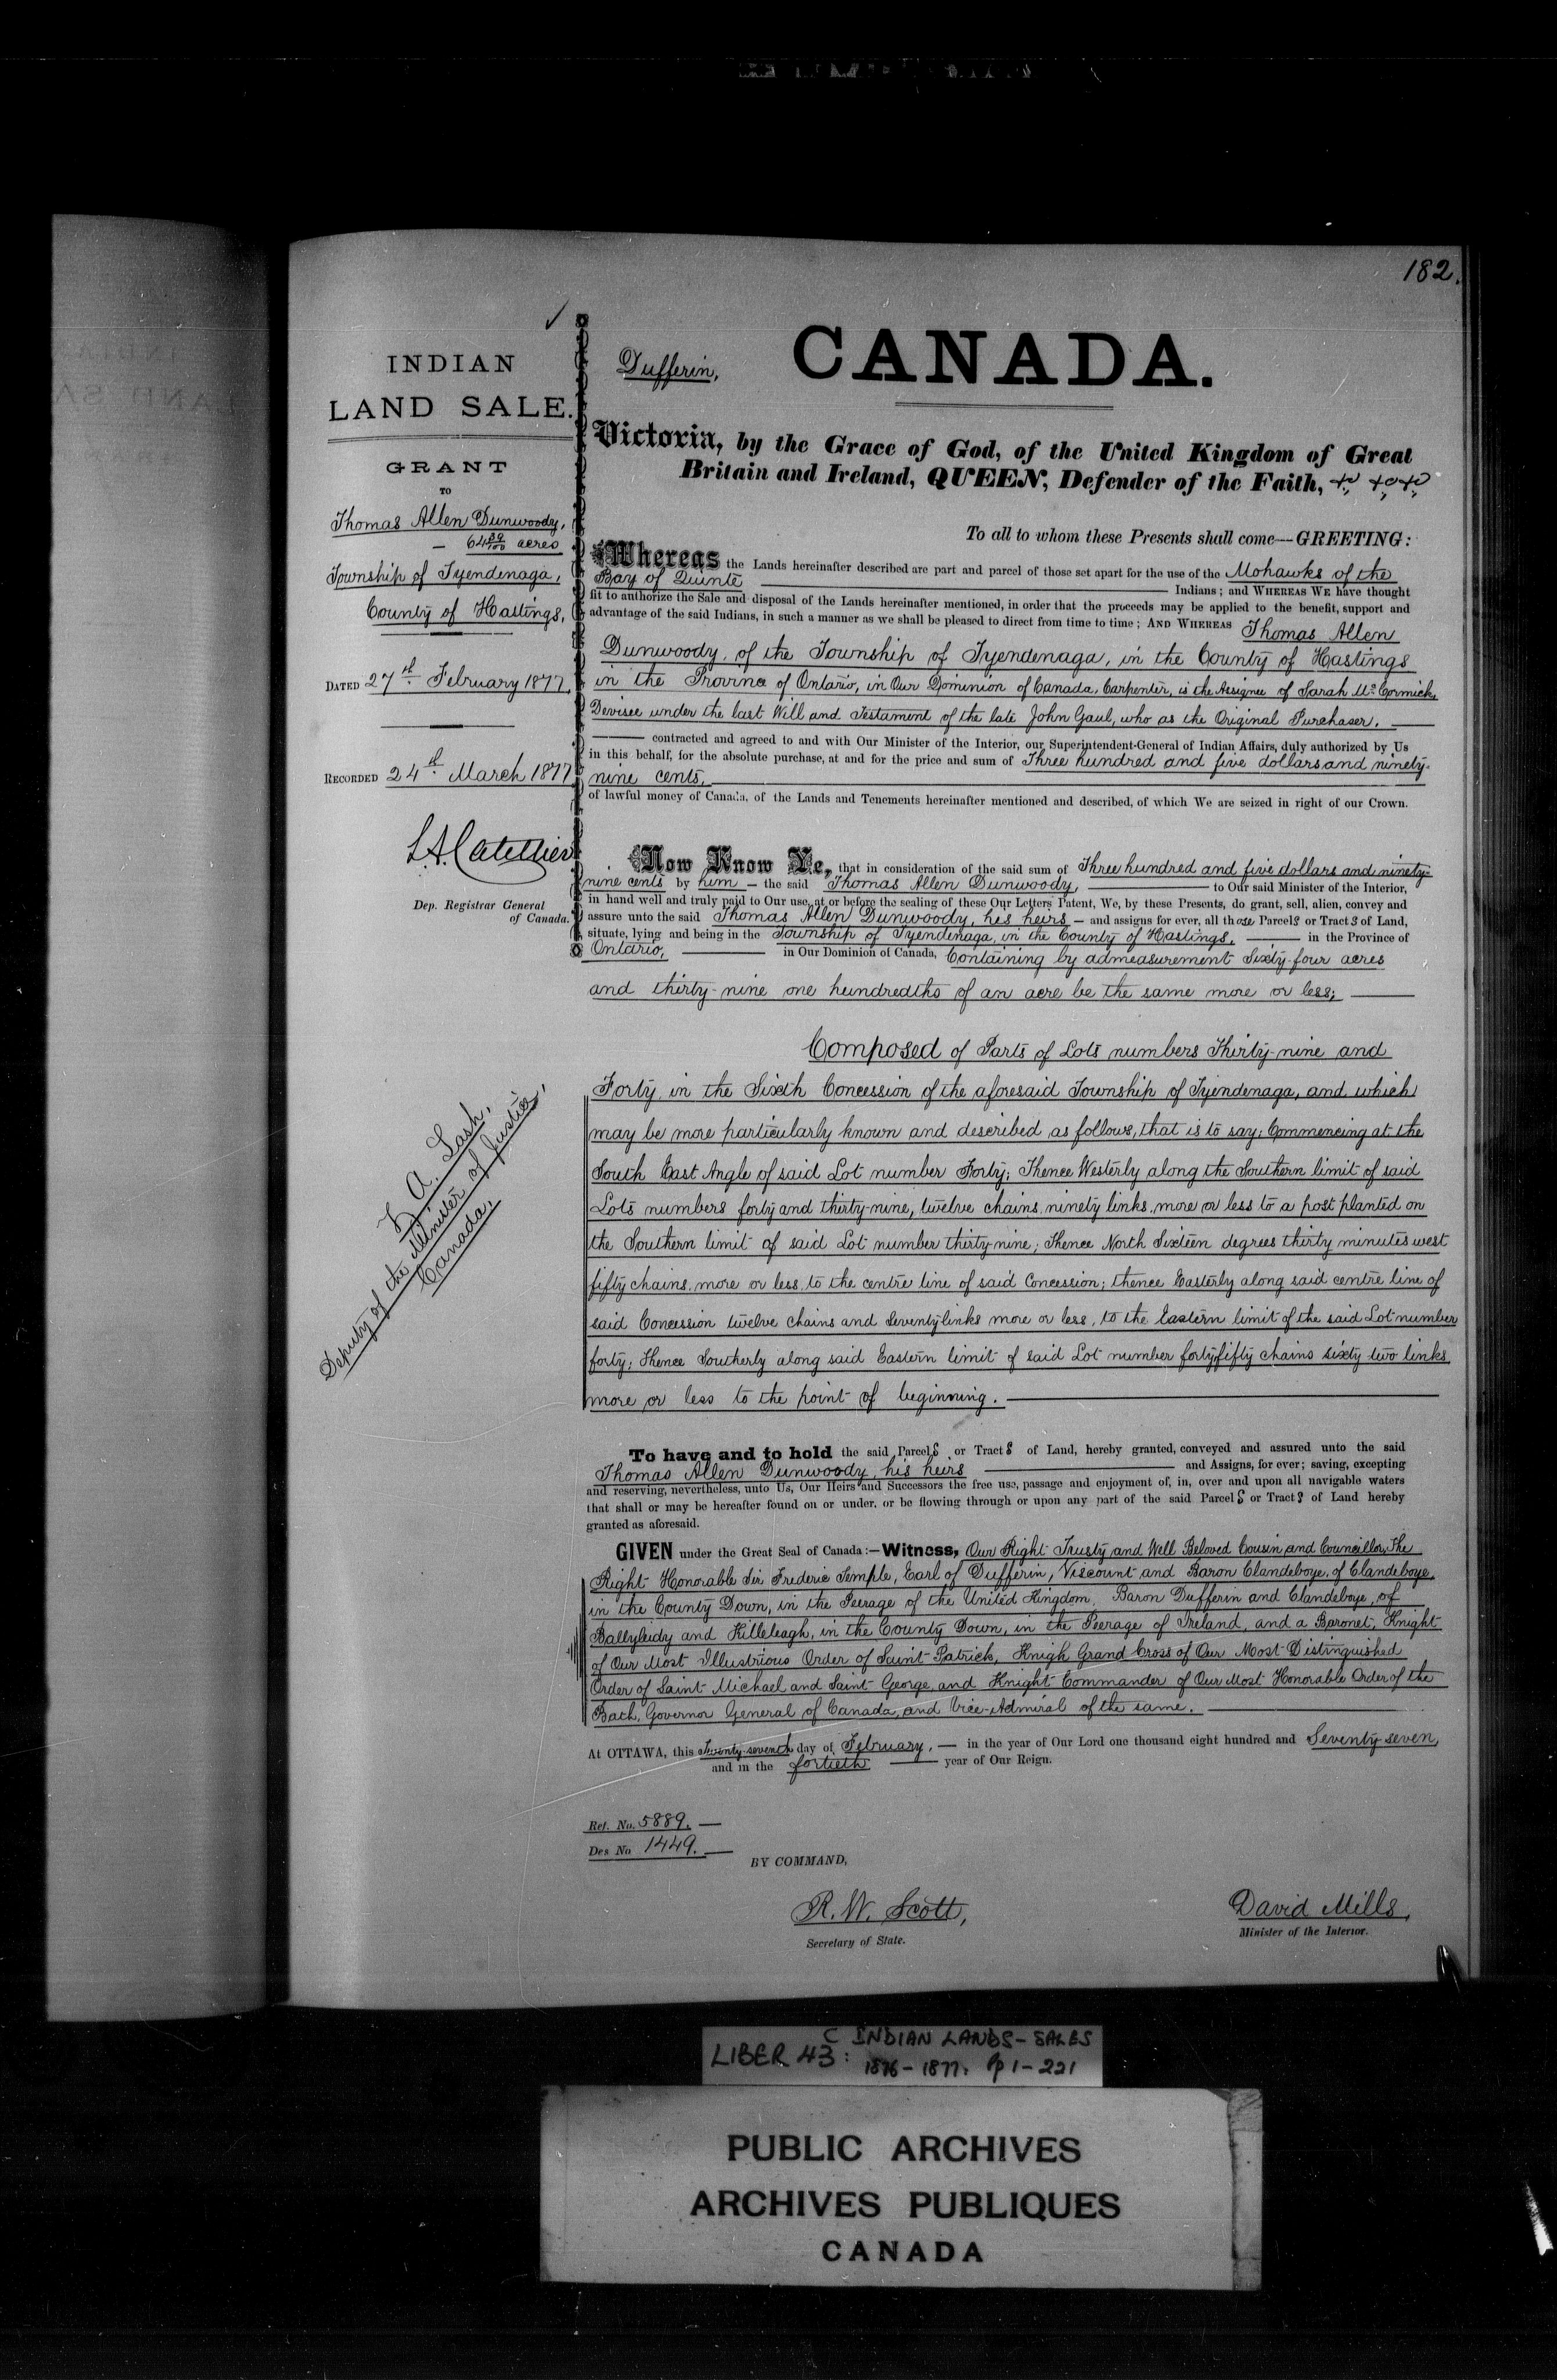 182.
INDIAN
LAND SALE.
GRANT
TO
Thomas Allen Dunwoody,
— 64 39/100 acres
Township of Tyendenaga,
County of Hastings,
DATED 27th February 1877.
RECORDED 24th March 1877
L.A. Catellier
Dep. Registrar General
of Canada.
Z. A. Lash,
Deputy of the Minister of Justice,
Canada.
Dufferin,
CANADA.
Victoria, by the Grace of God, of the United Kingdom of Great
Britain and Ireland, QUEEN, Defender of the Faith, &c, &c, &c,
To all to whom these Presents shall come—GREETING:
Whereas the Lands hereinafter described are part and parcel of those set apart for the use of the Mohawks of the
Bay of Quinté Indians; and WHEREAS WE have thought
fit to authorize the Sale and disposal of the Lands hereinafter mentioned, in order that the proceeds may be applied to the benefit, support and
advantage of the said Indians, in such a manner as we shall be pleased to direct from time to time; AND WHEREAS Thomas Allen
Dunwoody, of the Township of Tyendenaga, in the County of Hastings
in the Province of Ontario, in Our Dominion of Canada, Carpenter, is the Assignee of Sarah McCormick,
Devisee under the last Will and Testament of the late John Gaul, who as the Original Purchaser.
contracted and agreed to and with Our Minister of the Interior, our Superintendent-General of Indian Affairs, duly authorized by Us
in this behalf, for the absolute purchase, at and for the price and sum of Three hundred and five dollars and ninety-
nine cents,
of lawful money of Canada, of the Lands and Tenements hereinafter mentioned and described, of which We are seized in right of our Crown.
Now Know Ye, that in consideration of the said sum of Three hundred and five dollars and ninety-
nine cents by him — the said Thomas Allen Dunwoody, to Our said Minister of the Interior,
in hand well and truly paid to Our use, at or before the sealing of these Our Letters Patent, We, by these Presents, do grant, sell, alien, convey and
assure unto the said Thomas Allen Dunwoody, his heirs — and assigns for ever, all those Parcels or Tracts of Land,
situate, lying and being in the Township of Tyendenaga, in the County of Hastings, in the Province of
Ontario, in Our Dominion of Canada, Containing by admeasurement Sixty-four acres
and thirty-nine one hundredths of an acre be the same more or less;
Composed of Parts of Lots numbers Thirty-nine and
Forty, in the Sixth Concession of the aforesaid Township of Tyendenaga, and which
may be more particularly known and described as follows, that is to say; Commencing at the
South East Angle of said Lot number Forty; Thence Westerly along the Southern limit of said
Lots numbers forty and thirty-nine, twelve chains ninety links, more or less to a post planted on
the Southern limit of said Lot number thirty-nine; Thence North Sixteen degrees thirty minutes west
fifty chains, more or less, to the centre line of said Concession; thence Easterly along said centre line of
said Concession twelve chains and Seventy links more or less, to the Eastern limit of the said Lot number
forty; Thence Southerly along said Eastern limit of said Lot number forty, fifty chains sixty two links
more or less to the point of beginning.
To have and to hold the said Parcels or Tracts of Land, hereby granted, conveyed and assured unto the said
Thomas Allen Dunwoody, his heirs and Assigns, for ever; saving, excepting
and reserving, nevertheless, unto Us, Our Heirs and Successors the free use, passage and enjoyment of, in, over and upon all navigable waters
that shall or may be hereafter found on or under, or be flowing through or upon any part of the said Parcels or Tracts of Land hereby
granted as aforesaid.
GIVEN under the Great Seal of Canada:—Witness, Our Right Trusty and Well Beloved Cousin and Councillor, The
Right Honorable Sir Frederic Temple, Earl of Dufferin, Viscount and Baron Clandeboye, of Clandeboye,
in the County Down, in the Peerage of the United Kingdom, Baron Dufferin and Clandeboye, of
Ballyleidy and Killeleagh, in the County Down, in the Peerage of Ireland, and a Baronet, Knight
of Our Most Illustrious Order of Saint Patrick, Knigh Grand Cross of Our Most Distinguished
Order of Saint Michael and Saint George, and Knight Commander of Our Most Honorable Order of the
Bath, Governor General of Canada, and Vice-Admiral of the same.
At OTTAWA, this Twenty-seventh day of February, — in the year of Our Lord one thousand eight hundred and Seventy seven,
and in the fortieth year of Our Reign.
Ref. No. 5889.
Des No 1449.
BY COMMAND,
R. W. Scott,
Secretary of State.
David Mills,
Minister of the Interior.
LIBER 43: C INDIAN LANDS - SALES
1876-1877. pp 1-221
PUBLIC ARCHIVES
ARCHIVES PUBLIQUES
CANADA